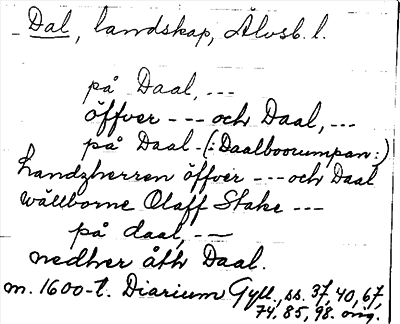 Dal, landskap, Älvsb. l.
på Daal, ---
öffver --- och Daal, ---
på Daal (: Daalboorumpan :)
handzherren öffver --- och Daal
wällborne Olaff Stake ---
på daal, ---
nedher åth Daal.
m. 1600-t. Diarium Gyll., ss. 37, 40, 67,
74, 85, 98. orig.